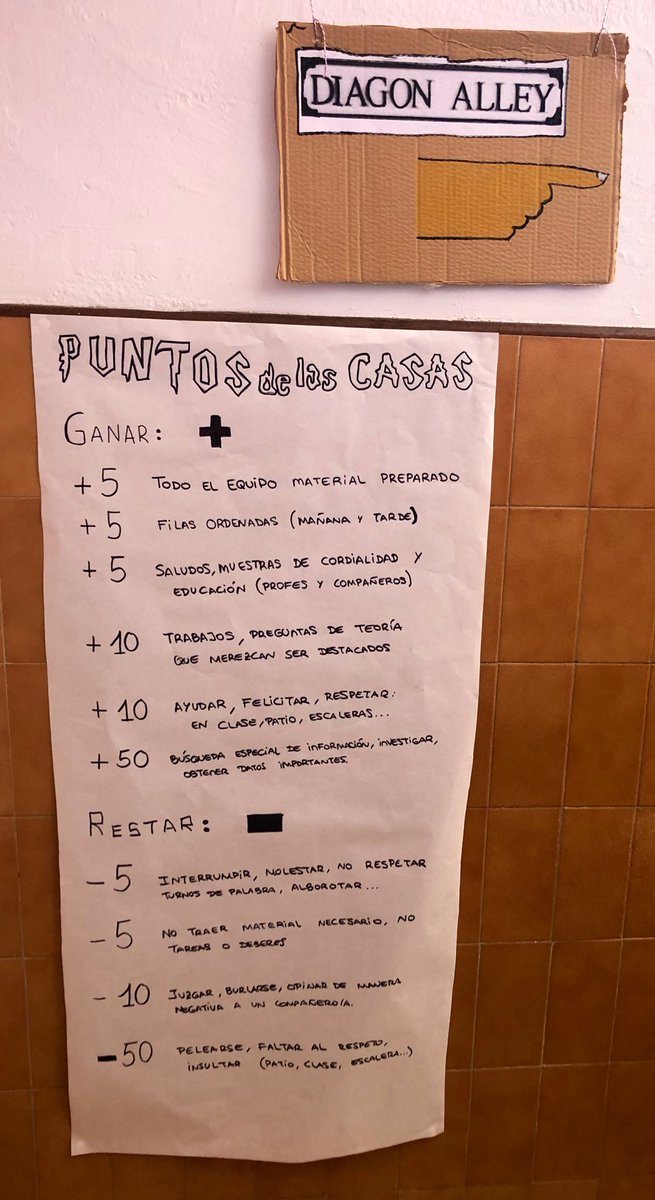 DIAGON ALLEY
PUNTOS de las CASAS
GANAR: +
+5 TODO EL EQUIPO MATERIAL PREPARADO
+5 FILAS ORDENADAS (MAÑANA Y TARDE)
+5 SALUDOS, MUESTRAS DE CORDIALIDAD Y
EDUCACIÓN (PROFES Y COMPAÑEROS)
+10 TRABAJOS, PREGUNTAS DE TEORÍA
QUE MEREZCAN SER DESTACADOS
+10 AYUDAR, FELICITAR, RESPETAR:
EN CLASE, PATIO, ESCALERAS...
+50 BÚSQUEDA ESPECIAL DE INFORMACIÓN, INVESTIGAR,
OBTENER DATOS IMPORTANTES.
RESTAR: -
-5 INTERRUMPIR, MOLESTAR, NO RESPETAR
TURNOS DE PALABRA, ALBOROTAR...
-5 NO TRAER MATERIAL NECESARIO, NO
TAREAS O DEBERES
-10 JUZGAR, BURLARSE, OPINAR DE MANERA
NEGATIVA A UN COMPAÑERO/A.
-50 PELEARSE, FALTAR AL RESPETO,
INSULTAR (PATIO, CLASE, ESCALERA...)